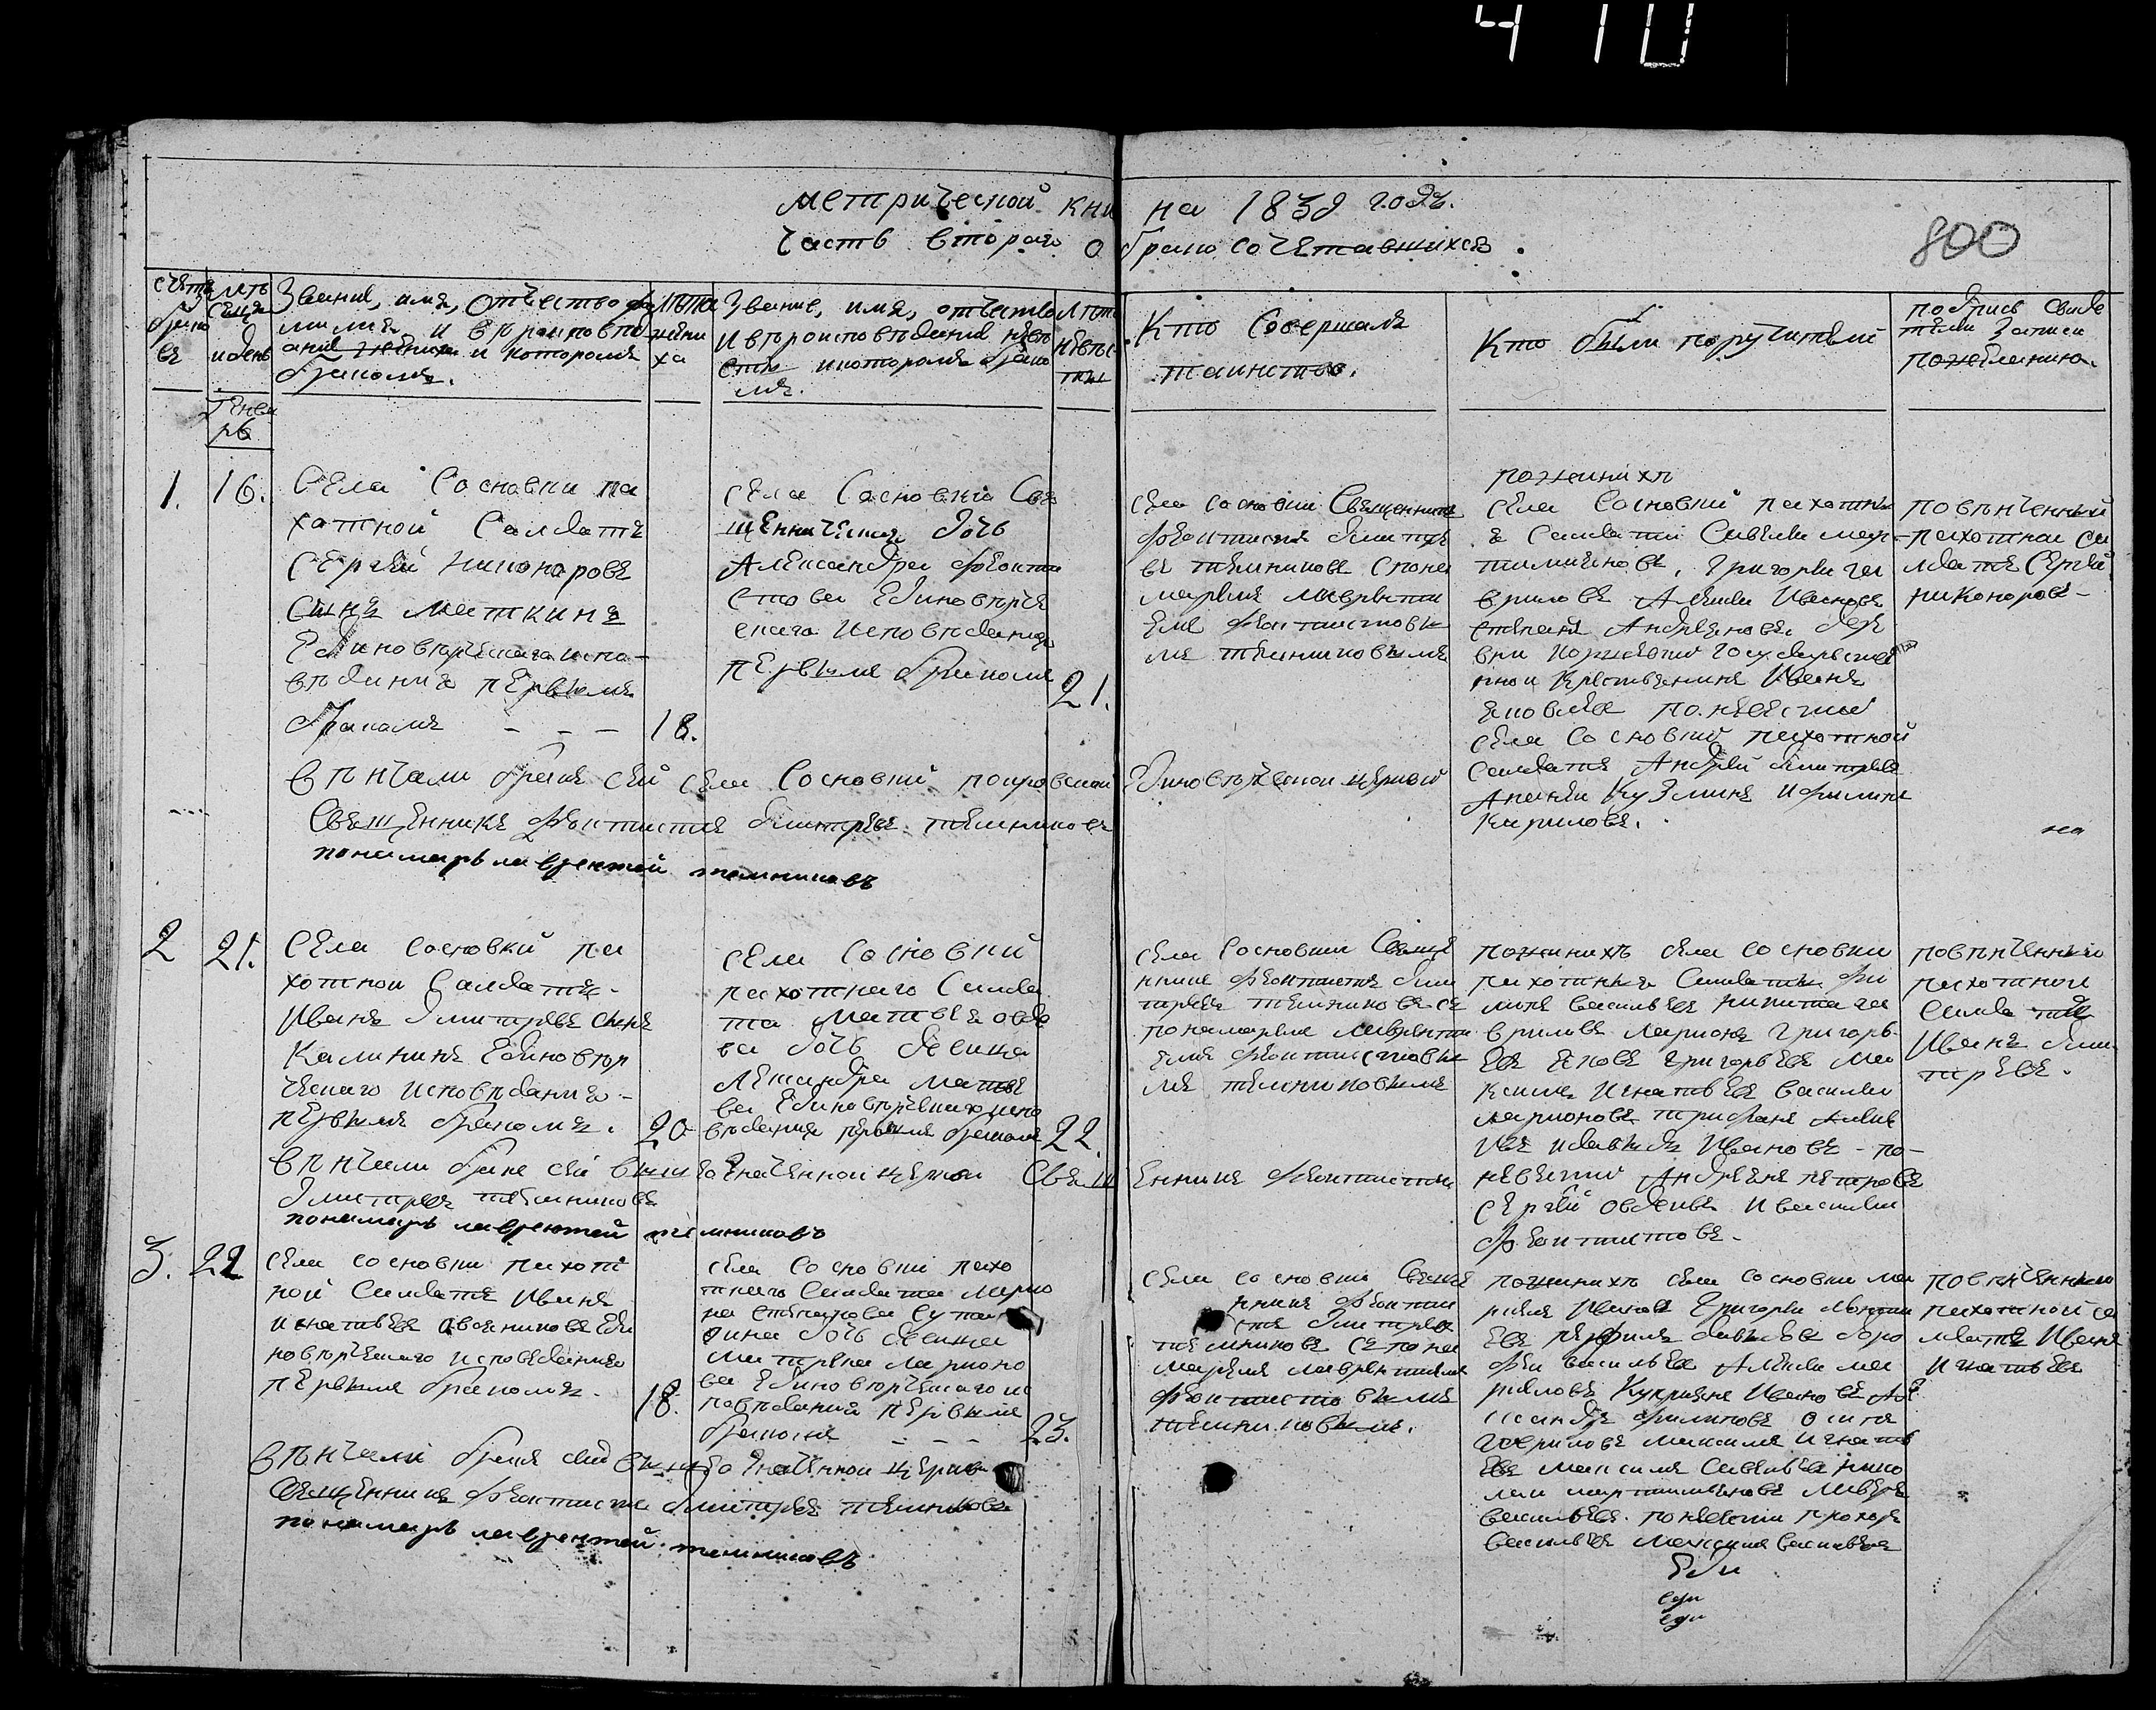 410
метрической кни на 1838 годъ.
Часть вторая о бракосочетавшихся.
800
счетъ браковъ
мѣсяцъ и день
Звание, имя, отчество фамилия и вѣроисповѣдание жениха и которымъ бракомъ.
лѣта жениха
Звание, имя, отчество и вѣроисповѣдание невѣсты и которымъ бракомъ.
лѣта невѣсты
Кто Совершалъ таинство.
Кто были поручители
подпись свидетелей записи по желанию.
Генварь
1.
16.
Села Сосновки па
хатной Салдатъ
Сергѣй Никоноровъ
сынъ Маткинъ
Единовѣрческаго испо-
вѣдания первымъ
бракомъ - - -
18.
села Сосновки Свя
щенническая дочь
Александра Феокти
стова Единовѣрче
скаго Исповѣдания
первымъ бракомъ
21.
села Сосновки Священникъ
Феоктистъ Дмитрие
въ темниковъ с пона
маремъ ЛаврентИ
емъ Феоктистовы
мъ темниковымъ
по женихѣ
села Сосновки пахатны
е Салдаты Савелий мар
тимияновъ, Григорий га
вриловъ Алексей Ивановъ
степанъ Андрияновъ. дере
вни
Крестьянинъ Иванъ
Яковлевъ по невестѣ
села Сосновки пахатной
Салдатъ Андрей Дмитриевъ
Ананий КуЗминъ и филипъ
Кириловъ.
повѣнченный
пахотной са
лдатъ Сергѣй
никоноровъ-
вѣнчали бракъ сей села Сосновки покровской Единовѣрческой церкви
Священникъ Феоктистъ Дмитриевъ темниковъ
понамарь лаврентей темниковъ
на
2
21.
Села Сосновки па
хотной Салдатъ-
Иванъ Дмитриевъ сынъ
Калининъ Единовѣр
ческаго исповѣдания-
первымъ бракомъ.
20
села Сосновки
пахотнаго Салда
та Матвея овде
ва дочь девица
Александра Матве
ва Единовѣрческаго испо
вѣдания первымъ бракомъ
22.
села Сосновки Священ
никъ Феоктистъ Дми
триевъ темниковъ съ
понамаремъ Лавренти
емъ Феоктистовы
мъ темниковымъ
по женихѣ села Сосновки
пахотные Салдаты Фи
липъ васильевъ никита га
вриловъ Ларионъ Григорь
евъ Яковъ Григорьевъ Ма
ксимъ Игнатьевъ Василий
ларионовъ трифанъ
и давыдъ Ивановъ - по-
невести Андреянъ петровъ
Сергѣй овдеивъ И василий
Феоктистовъ-
повѣнченный
пахотной
Салда тъ
Иванъ Дми
триевъ.
вѣнчали бракъ сей вышеозначенной церкви Священникъ Феоктистъ
Дмитриевъ темниковъ
понамарь лаврентей темниковъ
3.
22
села Сосновки пахот
ной Салдатъ Иванъ
Игнатьевъ Овсяниковъ Еди
новѣрческаго исповедания
первымъ бракомъ-
18.
села Сосновки пахо
тнаго Салдата Ларио
на степанова
дочь девица
Матрена Ларионо
ва Единовѣрческаго ис
повѣдания первымъ
бракомъ - - -
23.
села Сосновки Священ
никъ Феокти
стъ Дмитриевъ
темниковъ съ пона
маремъ лаврентиемъ
Феоктистовымъ
темниковымъ.
по женихѣ села Сосновки
Ивановъ Григорий
евъ перфилъ давыдовъ доро
фей васильевъ Алексей
Куприянъ Ивановъ Але
ксандръ Филиповъ Осипъ
гавриловъ максимъ игнать
евъ максимъ Савельевъ нико
лай мартимьяновъ
васильевъ. по невести прохоръ
васильевъ Максимъ васильевъ
повѣнченный
пахотной са
лдатъ Иванъ
Игнатьевъ
вѣнчали бракъ сей вышеозначенной церкви
Священникъ Феоктистъ Дмитриевъ темниковъ
понамарь лаврентей темниковъ
Еди
еди
еди